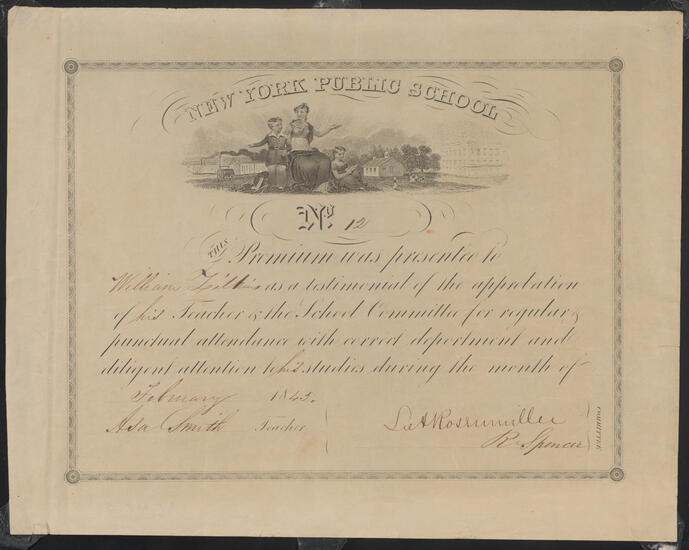 NEW YORK PUBLIC SCHOOL
No. 12
THIS Premium was presented to
William as a testimonial of the approbation
of his Teacher & the School Committee for regular &
punctual attendance with correct deportment and
diligent attention to his studies during the month of
February 1845.
Asa Smith Teacher
R. Spencer
COMMITTEE